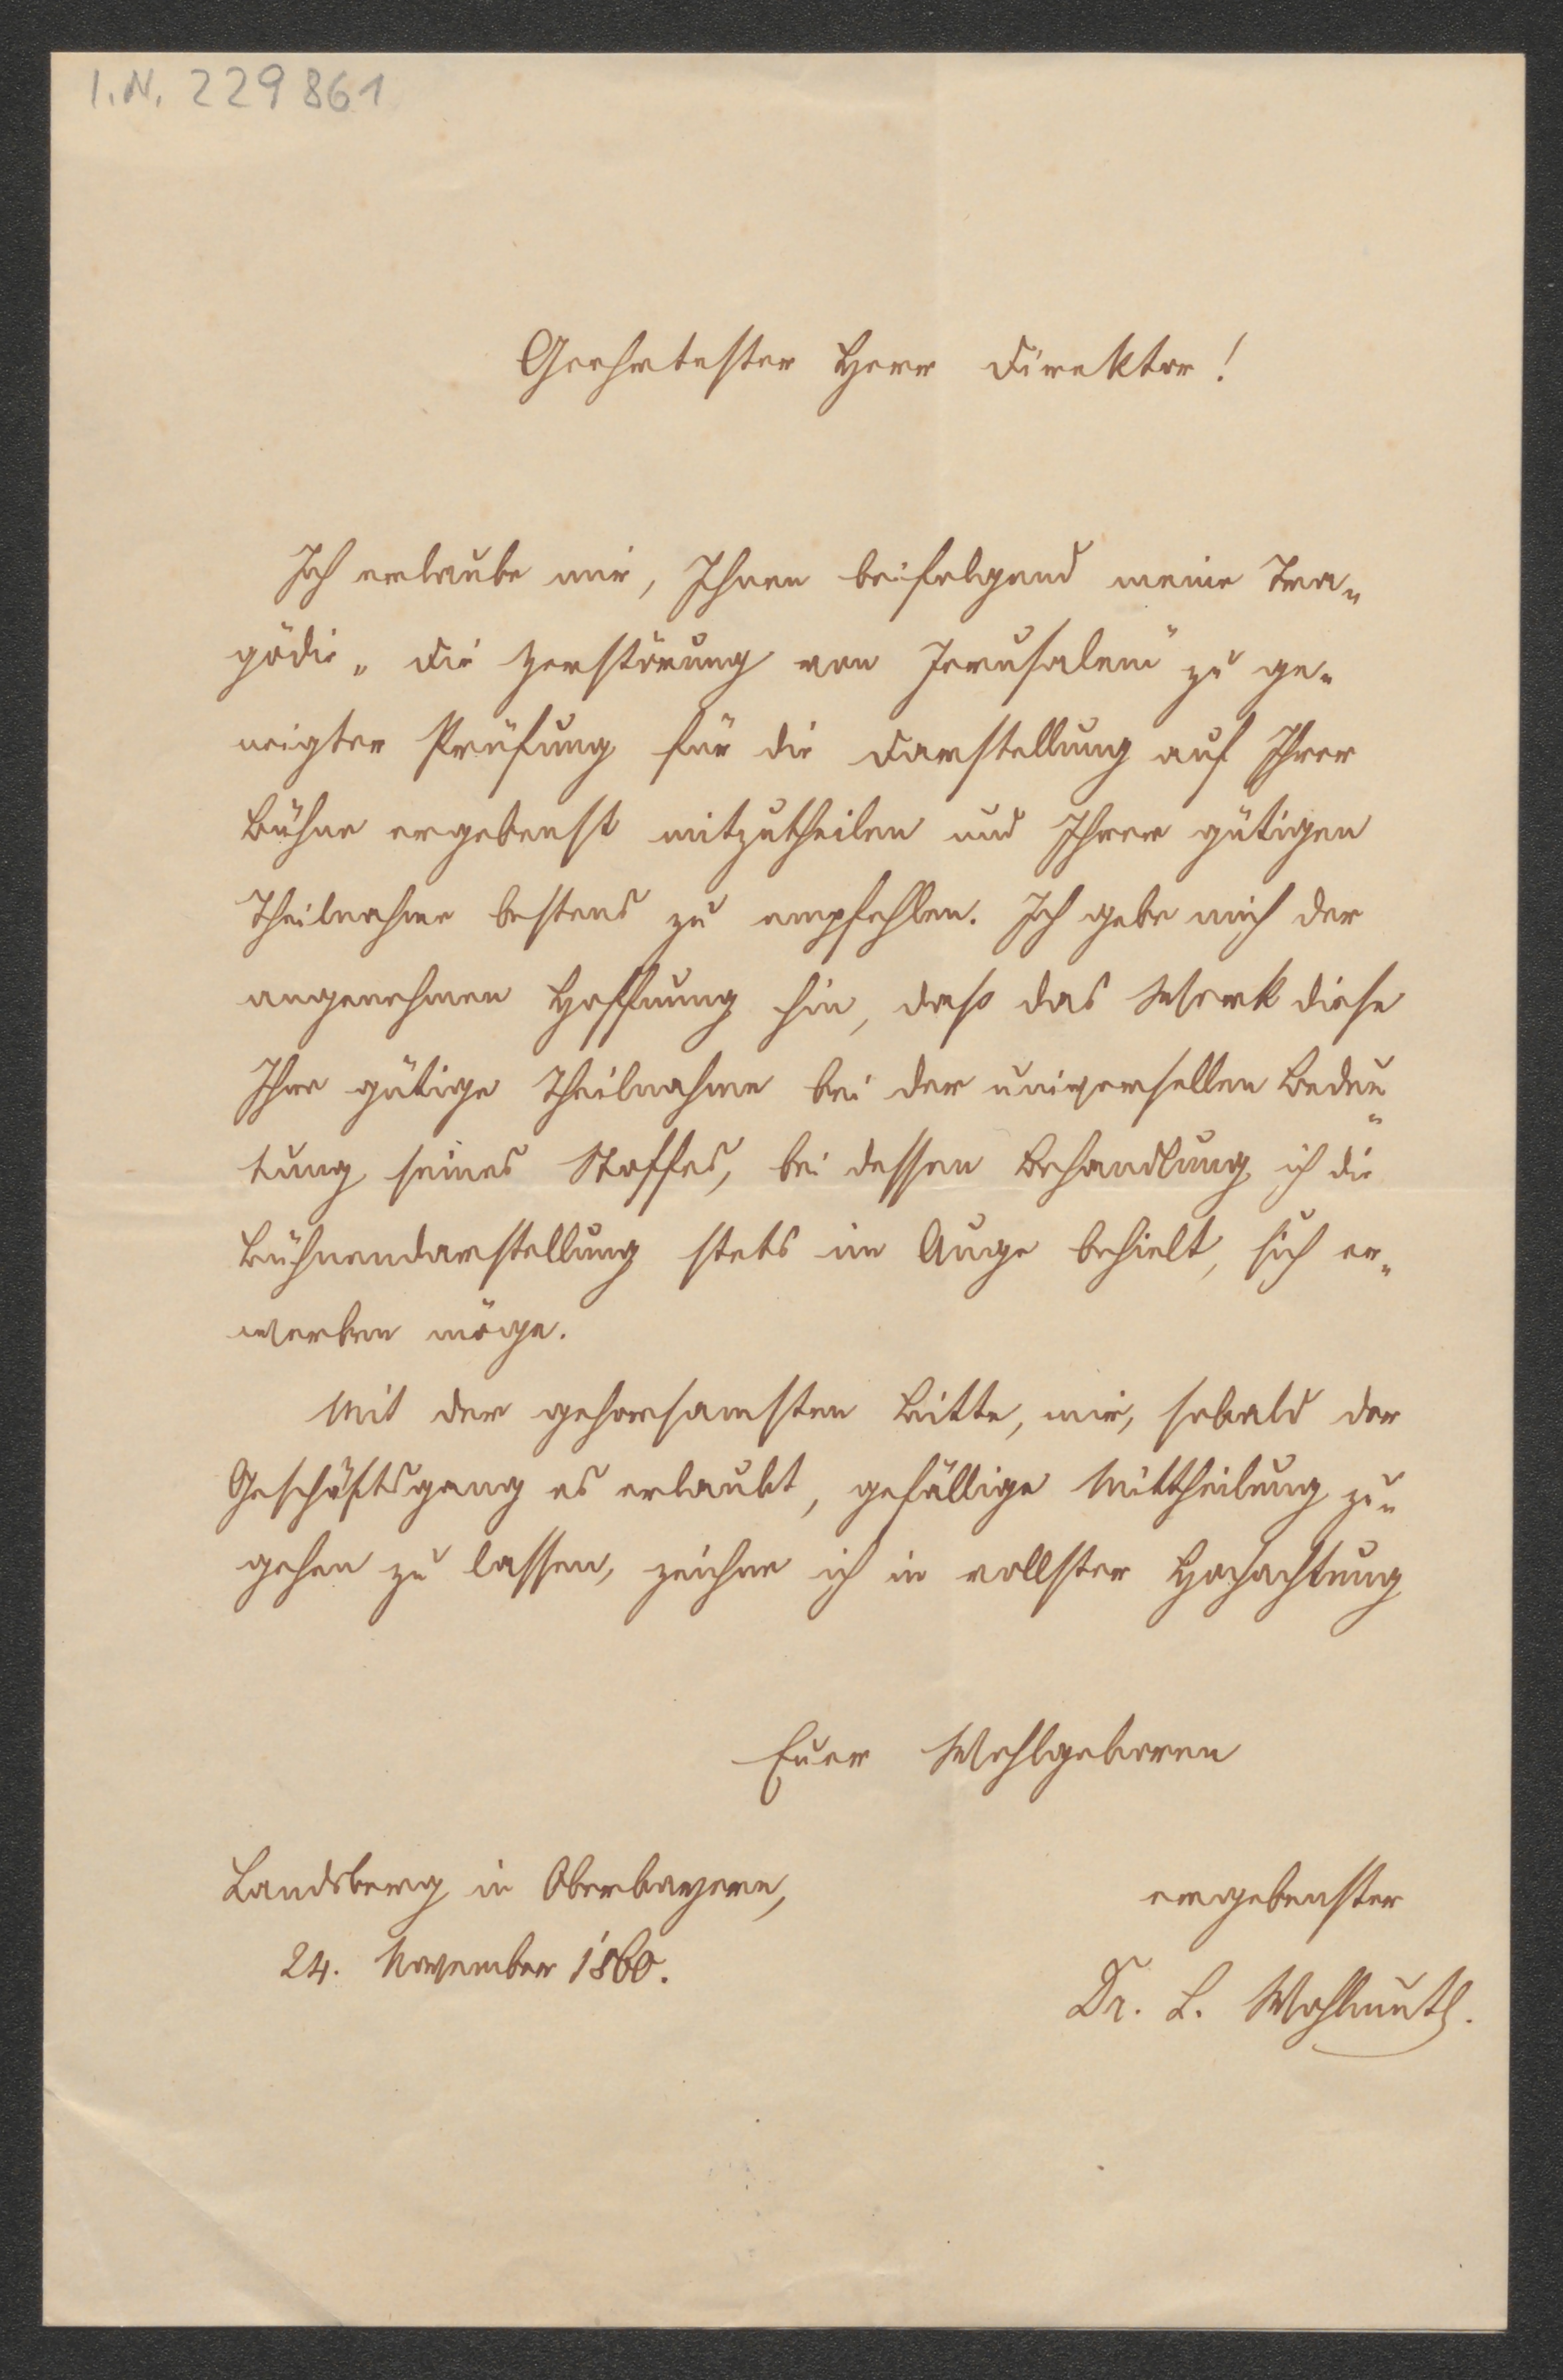 I.N. 229861
Geehrtester Herr Direktor!
Ich erlaube mir, Ihnen beifolgend meine Tra-
gödie „Die Zerstörung von Jerusalem“ zu ge-
neigter Prüfung für die Darstellung auf Ihrer
Bühne ergebenst mitzutheilen und Ihrer gütigen
Theilnahme bestens zu empfehlen. Ich gebe mich der
angenehmen Hoffnung hin, daß das Werk diese
Ihre gütige Theilnahme bei der universellen Bedeu-
tung seines Stoffes, bei dessen Behandlung ich die
Bühnendarstellung stets im Auge behielt, sich er-
werben möge.
Mit der gehorsamsten Bitte, mir, sobald der
Geschäftsgang es erlaubt, gefällige Mittheilung zu-
gehen zu lassen, zeichne ich in vollster Hochachtung
Euer Wohlgeboren
Landsberg in Oberbayern,
ergebenster
24. November 1860.
Dr. L. Wohlmuth.